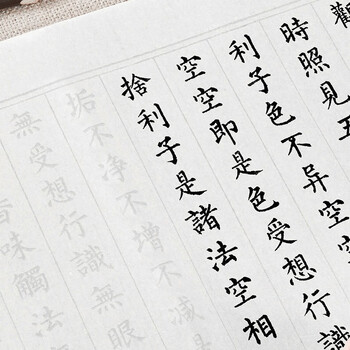 觀
時照見五
利子色不异空空
空空即是色受想行識
捨利子是諸法空相
垢不净不增不減是
無受想行識無眼
香味觸法